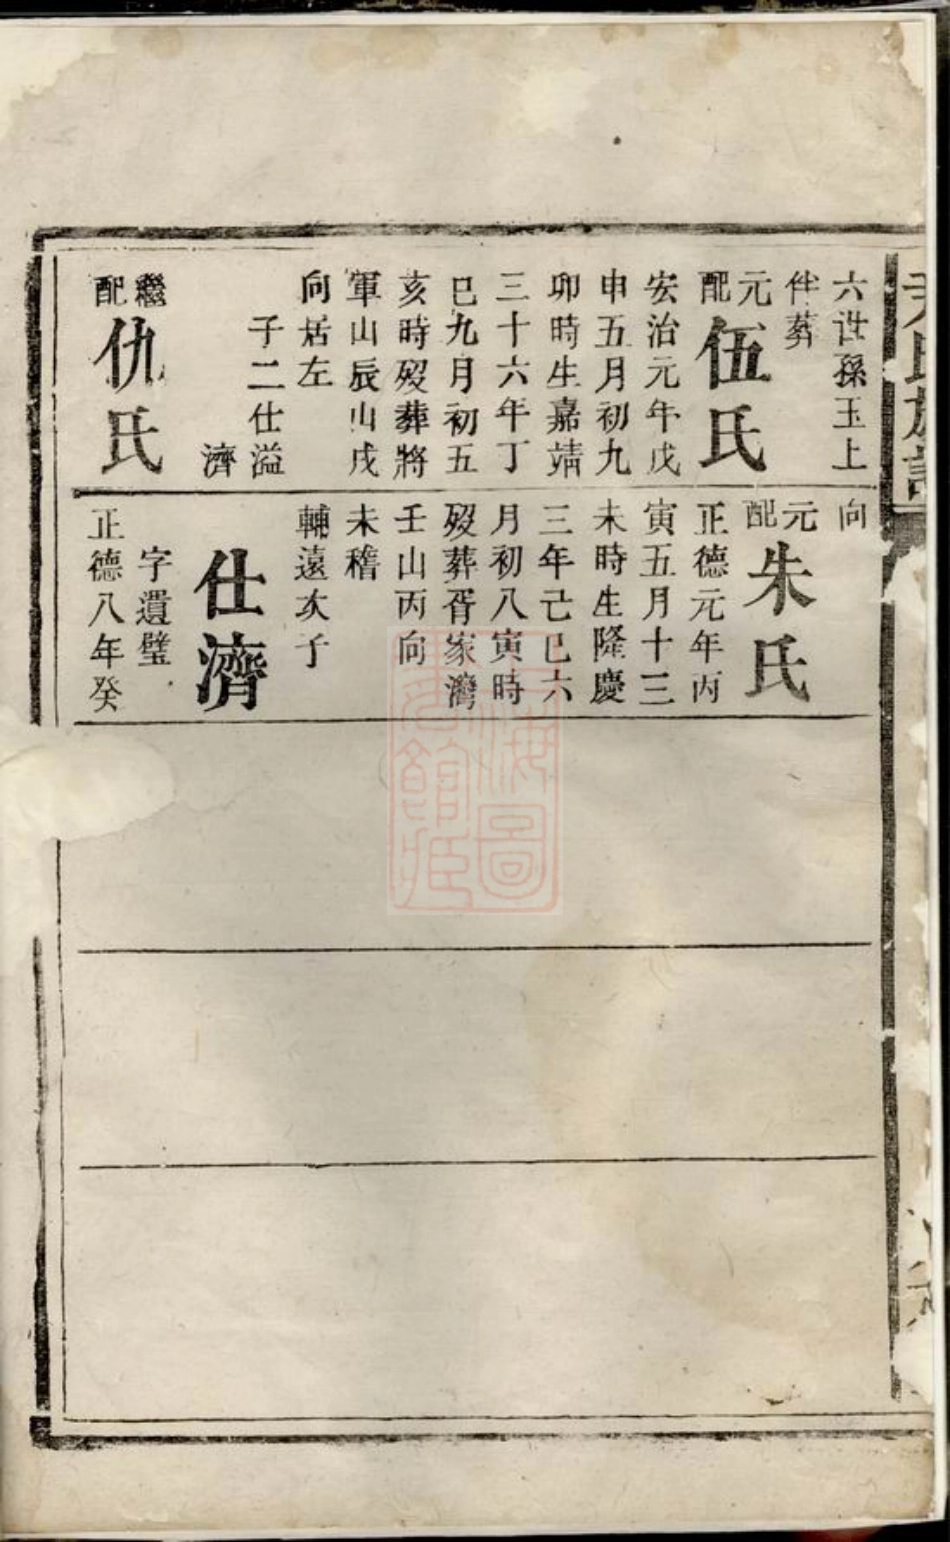 六世孫玉上
伴葬
元配
伍氏
安治元年戊
申五月初九
卯時生嘉靖
三十六年丁
巳九月初五
亥時歿葬將
軍山辰山戌
向居左
子二仕溢
濟
繼配
仇氏
向
元配
朱氏
正德元年丙
寅五月十三
未時生隆慶
三年己巳六
月初八寅時
歿葬胥家灣
壬山丙向
未稽
輔遠次子
仕濟
字遺璧
正德八年癸